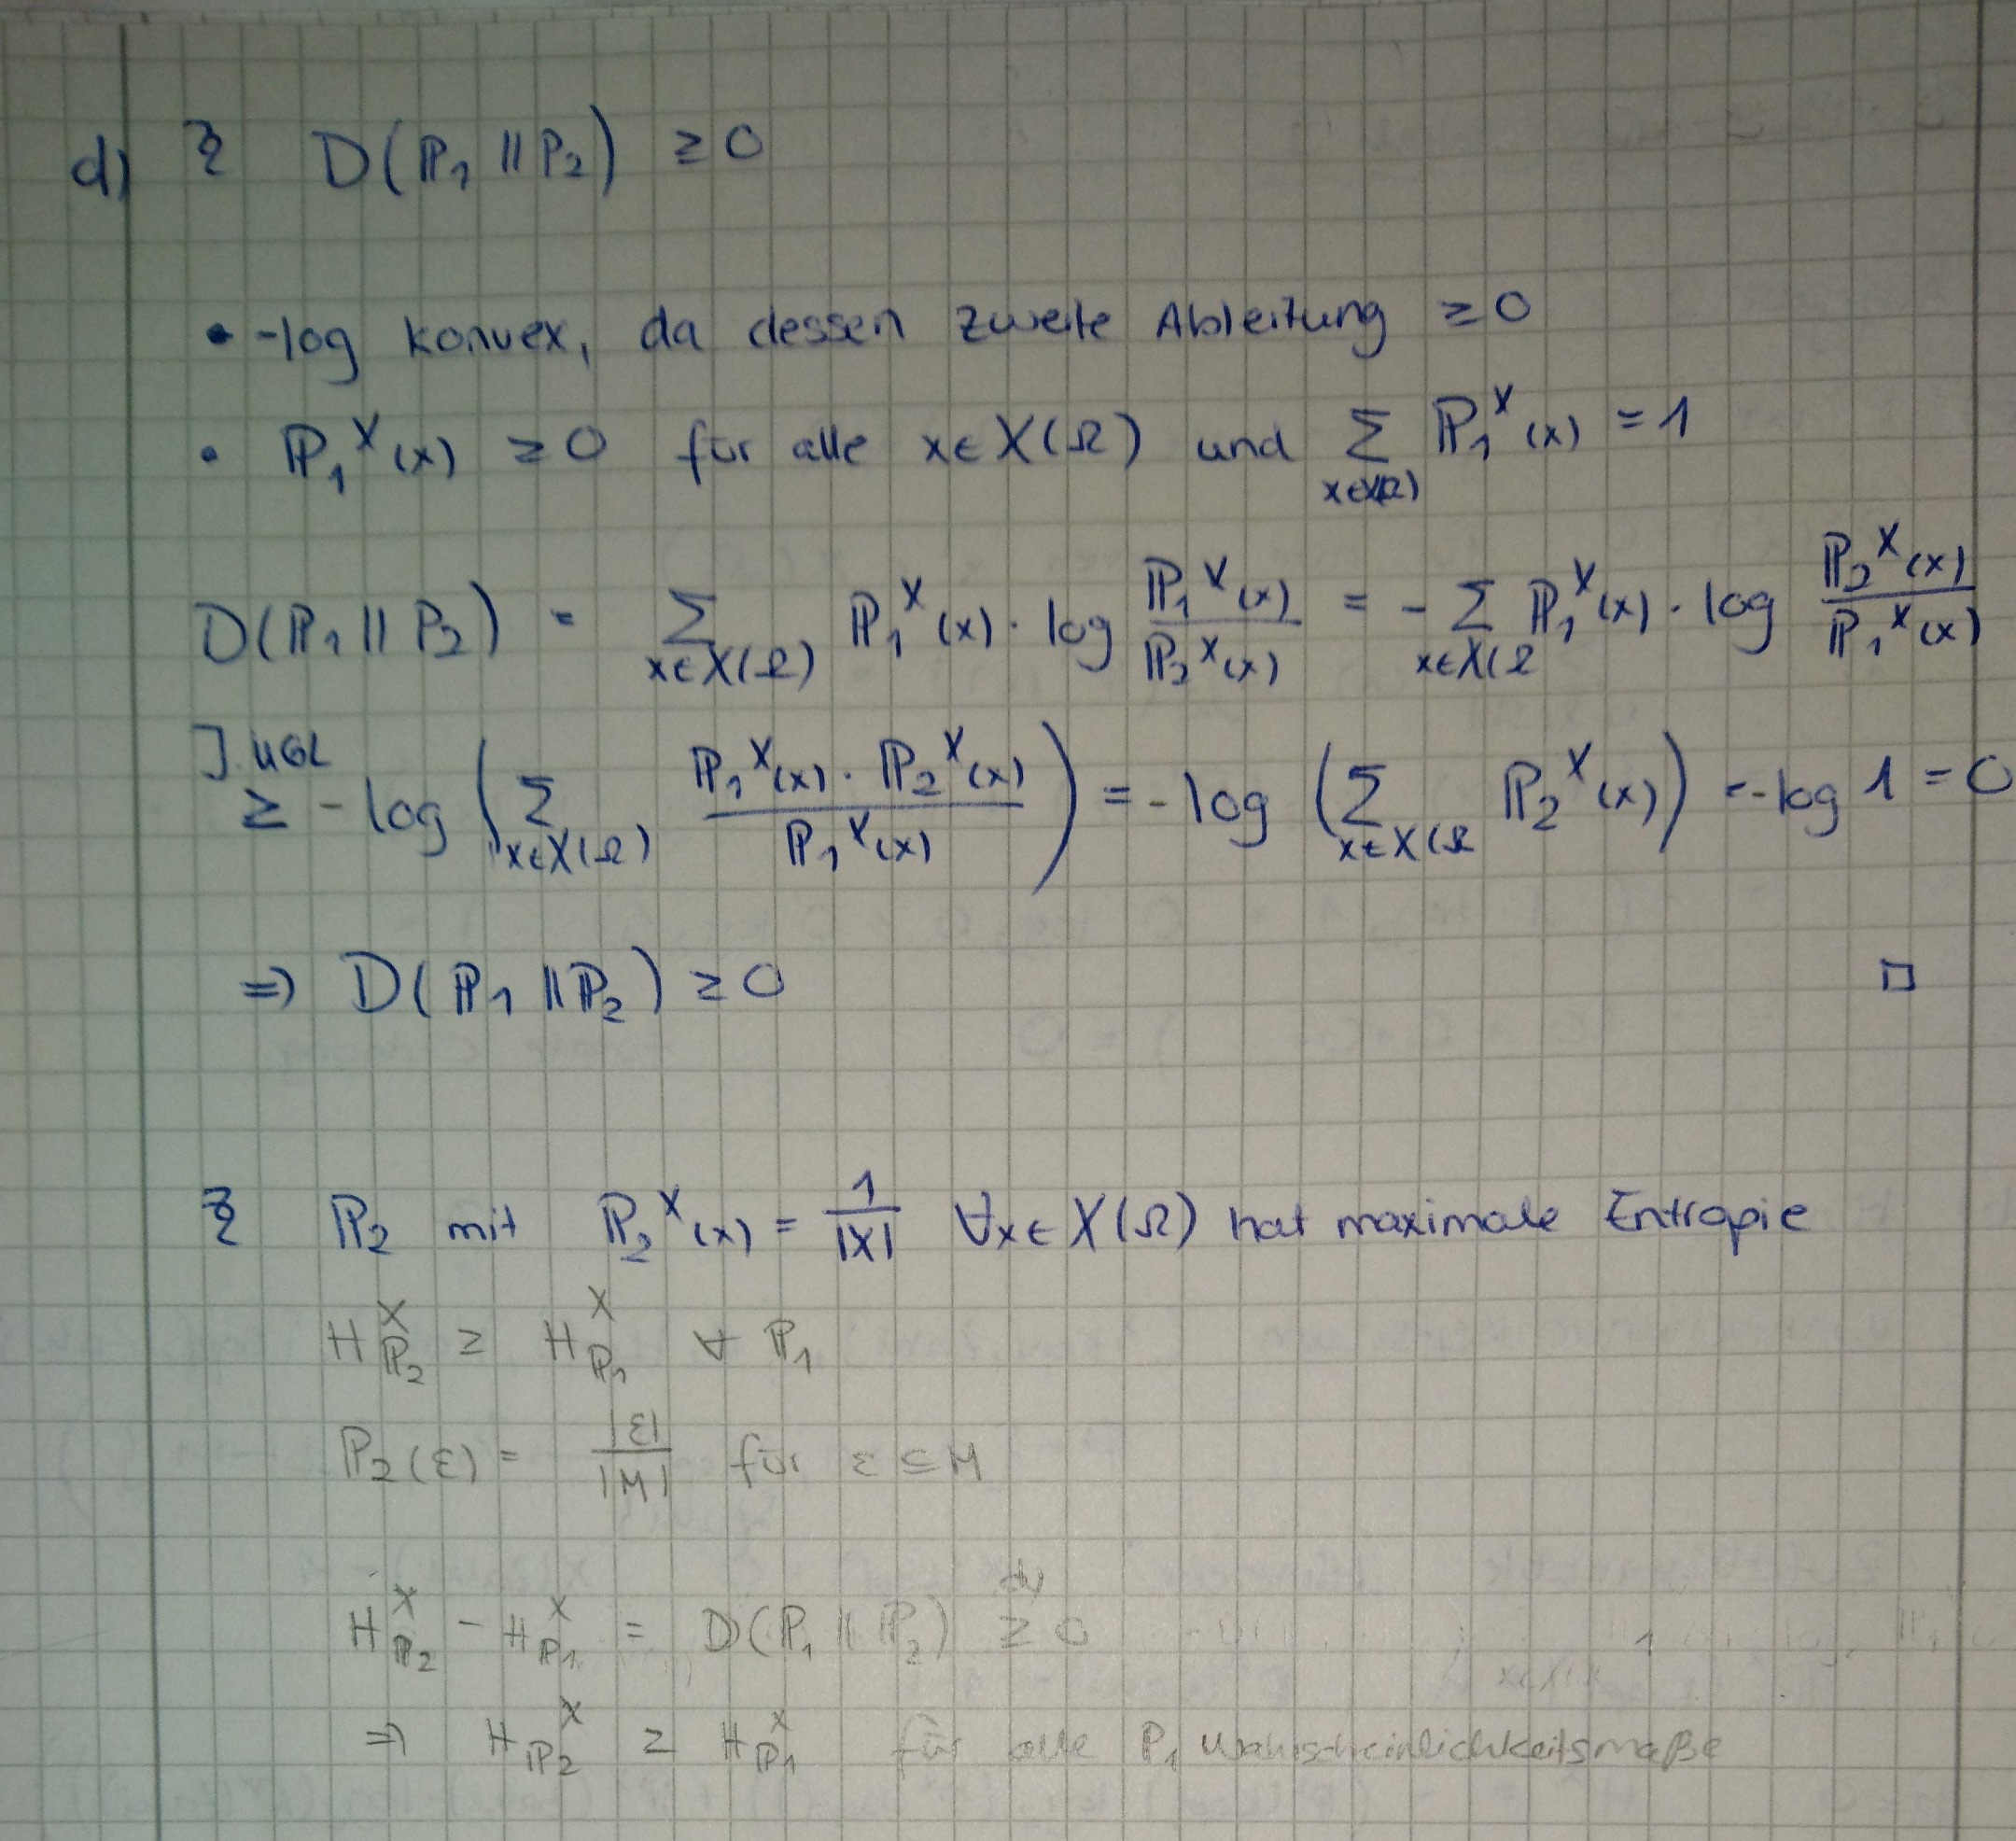 d) Z D(ℙ₁ || ℙ₂) ≥ 0
• -log konvex, da dessen zweite Ableitung ≥ 0
• ℙ₁ˣ(x) ≥ 0 für alle x ∈ X(Ω) und Σ_{x∈X(Ω)} ℙ₁ˣ(x) = 1
D(ℙ₁ || ℙ₂) = Σ_{x∈X(Ω)} ℙ₁ˣ(x) · log ℙ₁ˣ(x)/ℙ₂ˣ(x) = - Σ_{x∈X(Ω} ℙ₁ˣ(x) · log ℙ₂ˣ(x)/ℙ₁ˣ(x)
J. UGL
≥ -log ( Σ_{x∈X(Ω)} ℙ₁ˣ(x) · ℙ₂ˣ(x) / ℙ₁ˣ(x) ) = -log ( Σ_{x∈X(Ω} ℙ₂ˣ(x) ) = -log 1 = 0
⇒ D(ℙ₁ || ℙ₂) ≥ 0 □
Z ℙ₂ mit ℙ₂ˣ(x) = 1/|X| ∀x ∈ X(Ω) hat maximale Entropie
H^X_ℙ₂ ≥ H^X_ℙ₁ ∀ ℙ₁
ℙ₂(ε) = |ε|/|M| für ε ⊆ M
H^X_ℙ₂ - H^X_ℙ₁ = D(ℙ₁ || ℙ₂) ≥ 0
⇒ H^X_ℙ₂ ≥ H^X_ℙ₁ für alle ℙ₁ Wahrscheinlichkeitsmaße